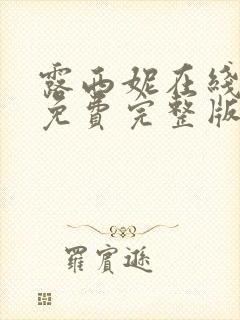 露西妮在线
免费完整版
羅賓遜